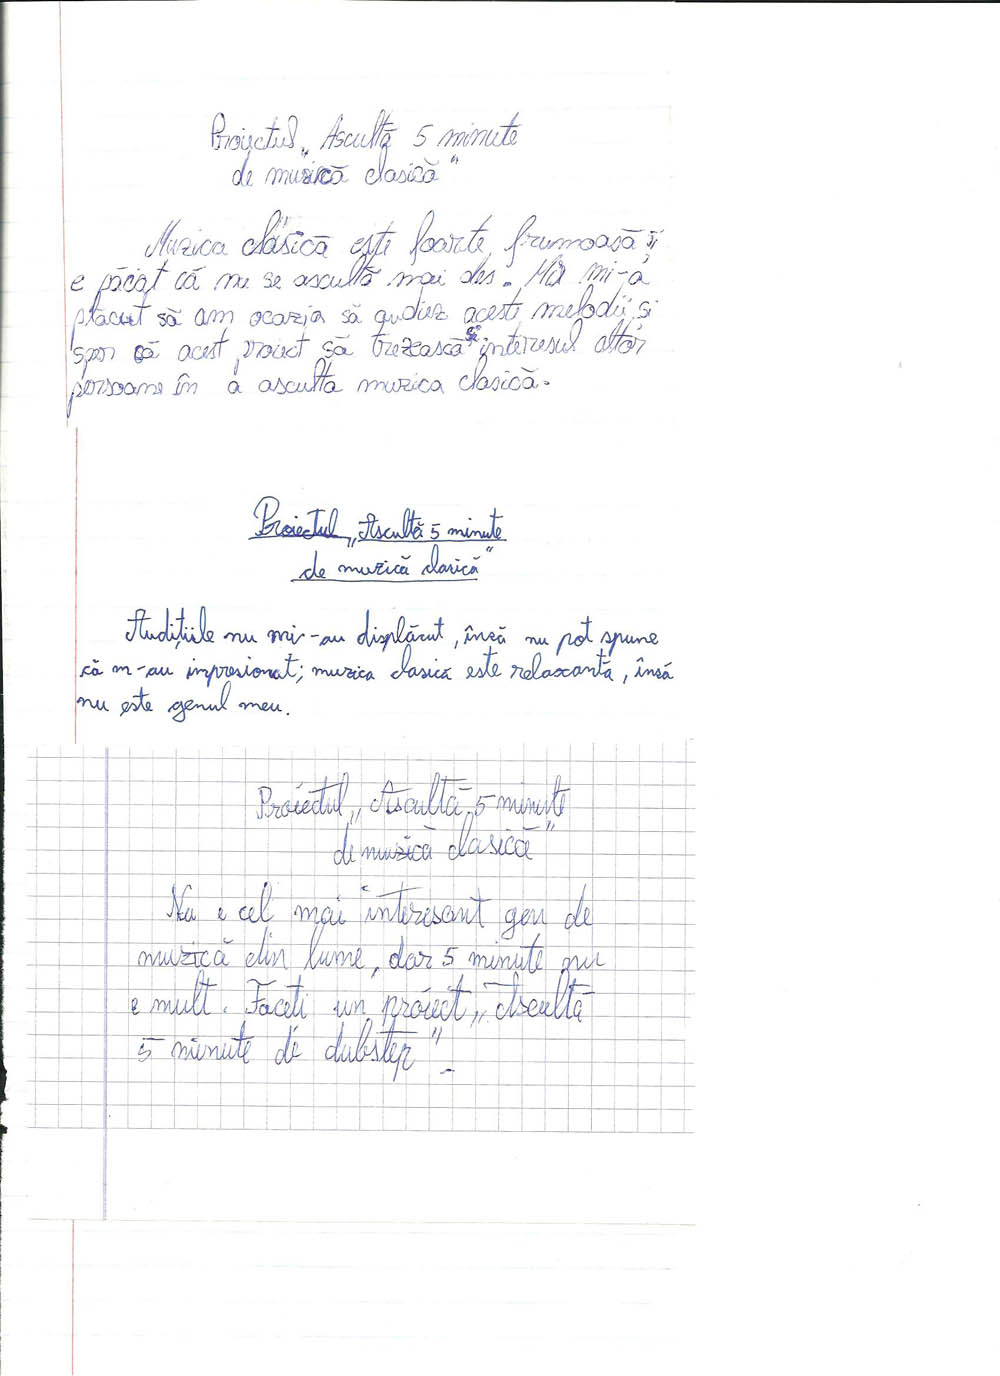 Proiectul „Ascultă 5 minute
de muzică clasică"
Muzica clasică este foarte frumoasă și
e păcat că nu se ascultă mai des. Mie mi-a
plăcut să am ocazia să audiez aceste melodii și
sper că acest proiect să trezească și interesul altor
persoane în a asculta muzica clasică.
Proiectul „Ascultă 5 minute
de muzică clasică"
Audițiile nu mi-au displăcut, însă nu pot spune
că m-au impresionat; muzica clasică este relaxantă, însă
nu este genul meu.
Proiectul „Ascultă 5 minute
de muzică clasică"
Nu e cel mai interesant gen de
muzică din lume, dar 5 minute nu
e mult. Faceti un proiect „Ascultă
5 minute de dubstep".